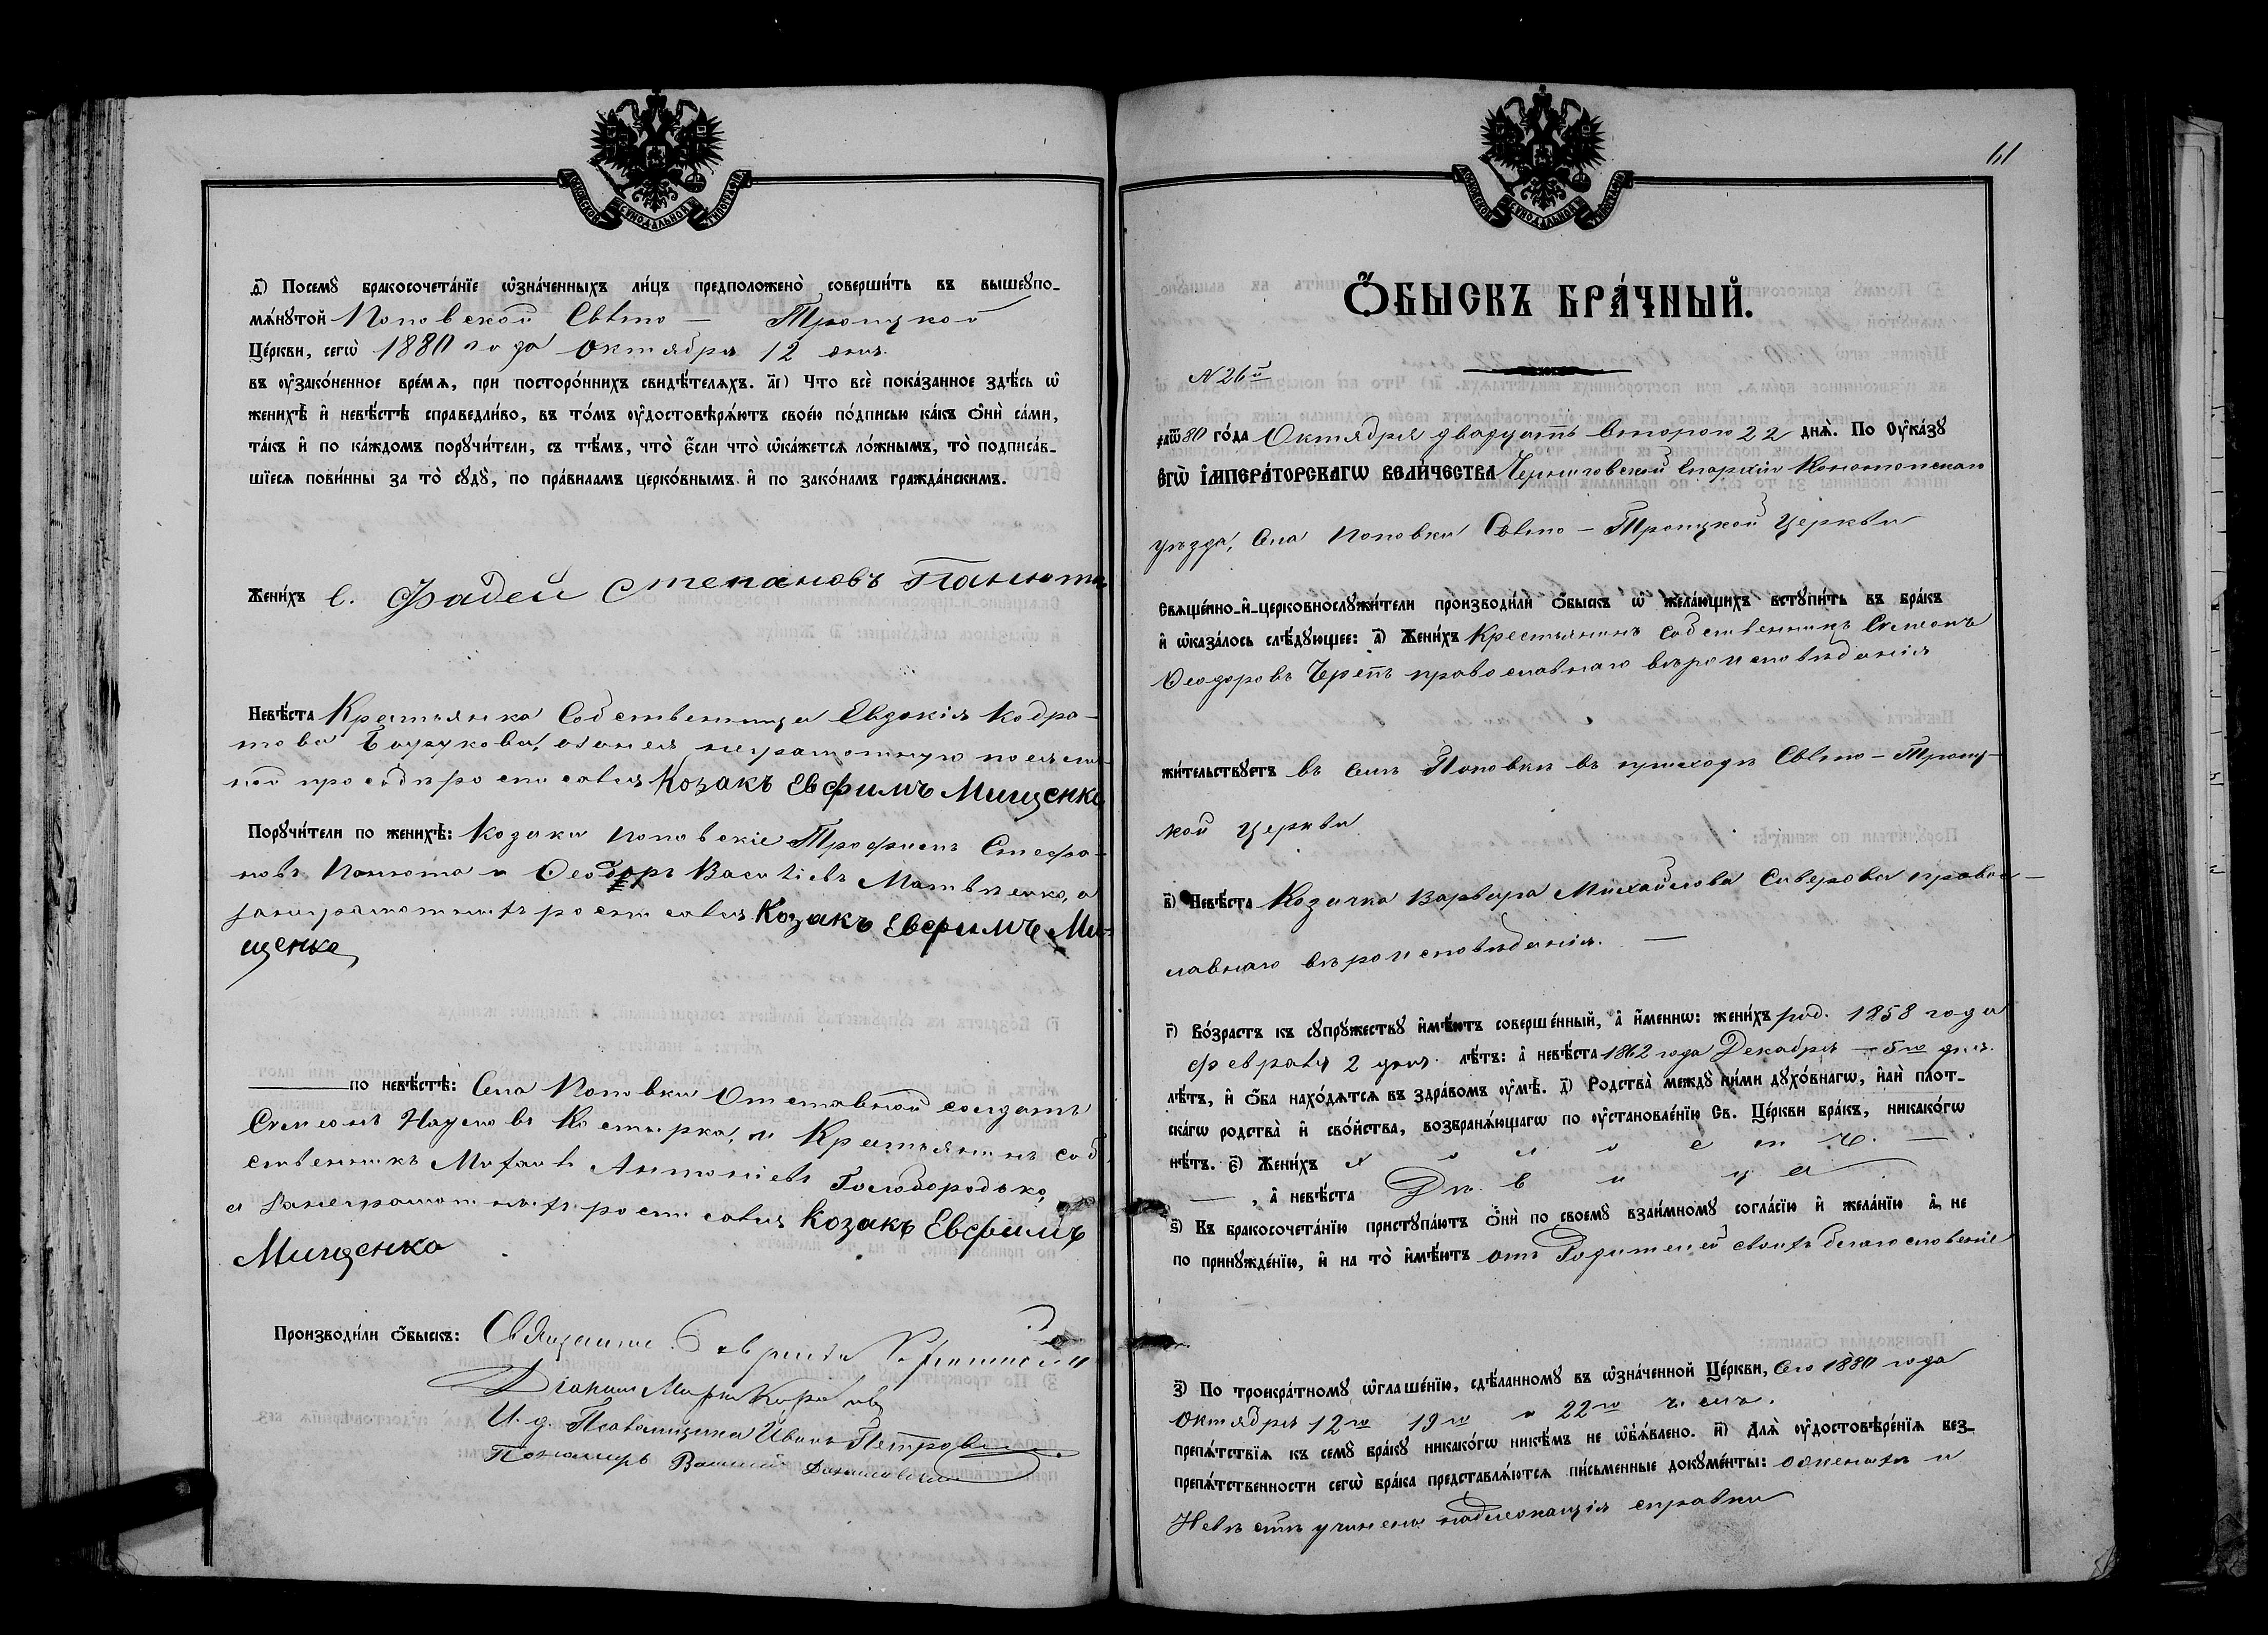 МОСКОВСКОЙ СѴНОДАЛЬНОЙ ТИПОГРАФІИ
і҃) Посемꙋ̀ бракосочета́нїе ѡ҆зна́ченныхъ ли́цъ предположено̀ соверши́ть въ вышеꙋпо-
мѧ́нꙋтой Поповской Свѣто – Троицкой
Це́ркви, сегѡ̀ 1880 года Октября 12 дня.
въ ᲂу҆зако́ненное вре́мѧ, при посторо́ннихъ свидѣ́телѧхъ. а҃і) Что всѐ пока́занное здѣ́сь ѡ҆
женихѣ̀ и҆ невѣ́стѣ справедли́во, въ то́мъ ᲂу҆достовѣрѧ́ютъ свое́ю по́дписью ка́къ ѻ҆нѝ са́ми,
та́къ и҆ по ка́ждомъ порꙋчи́тели, съ тѣ́мъ, что̀ є҆́сли что̀ ѡ҆ка́жетсѧ ло́жнымъ, то̀ подписа́в-
шїесѧ пови́нны за то̀ сꙋдꙋ̀, по пра́виламъ церко́внымъ и҆ по зако́намъ гражда́нскимъ.
Жени́хъ Фадей Степановъ Панюта
Невѣ́ста Крестьянка Собственница Евдокія Кодра-
това неграмотную по ея лич-
ной просьбѣ росписался Козакъ Евфимъ Мищенко
Порꙋчи́тели по женихѣ̀: Козаки Поповскіе Трофимъ Стефа-
новъ Панюта и Ѳеодоръ Василіевъ Матвѣенко, а
за неграмотныхъ росписался Козакъ Евфимъ Ми-
щенко
по невѣ́стѣ: Села Поповки Отставной солдатъ
Симеонъ Наумовъ Костырко, и Крестьянинъ соб
ственникъ Михаилъ Антоніевъ Голобородько,
а за неграмотныхъ росписался Козакъ Евфимъ
Мищенко
Производи́ли ѻ҆́быскъ: Священникъ Гавріилъ
Діаконъ Маркъ
И. д. Псаломщика Иванъ Петровскій
Пономарь Василій
61
МОСКОВСКОЙ СѴНОДАЛЬНОЙ ТИПОГРАФІИ
Ѻ҆́БЫСКЪ БРА́ЧНЫЙ.
№ 26й
҂аѿ80 го́да Октября двадцать второго 22 днѧ̀. По Оу҆ка́зꙋ
Є҆гѡ̀ І҆МПЕРА́ТОРСКАГѠ ВЕЛИ́ЧЕСТВА Черниговской Епархіи Конотопскаго
уѣзда, Села Поповки Свѣто – Троицкой Церкви
Свѧще́нно-и҆-церковнослꙋжи́тели производи́ли ѻ҆́быскъ ѡ҆ жела́ющихъ вступи́ть въ бра́къ
и҆ ѡ҆каза́лось слѣ́дꙋющее: а҃) Жени́хъ Крестьянинъ собственникъ Симеонъ
Ѳеодоровъ Черепъ православнаго вѣроисповѣданія
жи́тельствꙋетъ въ селѣ Поповкѣ въ приходѣ Свѣто – Троиц-
кой Церкви
в҃) Невѣ́ста Козачка Варвара Михайлова Сиверова право-
славнаго вѣроисповѣданія. —
г҃) Во́зрастъ къ сꙋпрꙋ́жествꙋ и҆мѣ́ютъ соверше́нный, а҆ и҆́меннѡ: жени́хъ род. 1858 года
февраля 2 дня. лѣ́тъ: а҆ невѣ́ста 1862 года Декабря – 5го дня.
лѣ́тъ, и҆ ѻ҆́ба нахо́дѧтсѧ въ здра́вомъ ᲂу҆мѣ̀. д҃) Родства̀ междꙋ̀ ни́ми дꙋхо́внагѡ, и҆лѝ плот-
ска́гѡ родства̀ и҆ сво́йства, возбранѧ́ющагѡ по ᲂу҆становле́нїю Св. Це́ркви бра́къ, никако́гѡ
нѣ́тъ. є҃) Жени́хъ холостъ. —
— , а҆ невѣ́ста Дѣвица
ѕ҃) Къ бракосочета́нїю пристꙋпа́ютъ ѻ҆нѝ по своемꙋ̀ взаи́мномꙋ согла́сїю и҆ жела́нїю а҆ не
по принꙋжде́нїю, и҆ на то̀ и҆мѣ́ютъ отъ Родителей своихъ благословеніе
з҃) По троекра́тномꙋ ѡ҆глаше́нїю, сдѣ́ланномꙋ въ ѡ҆зна́ченной Це́ркви, сего 1880 года
Октября 12го 19го и 22го числъ.
препѧ́тствїѧ къ семꙋ̀ бра́кꙋ никако́гѡ никѣ́мъ не ѡ҆б̾ѧ́влено. и҃) Длѧ̀ ᲂу҆достовѣре́нїѧ без-
препѧ́тственности сегѡ̀ бра́ка представлѧ́ютсѧ пи́сьменные докꙋме́нты: о женихѣ и
Невѣстѣ учинены надлежащія справки